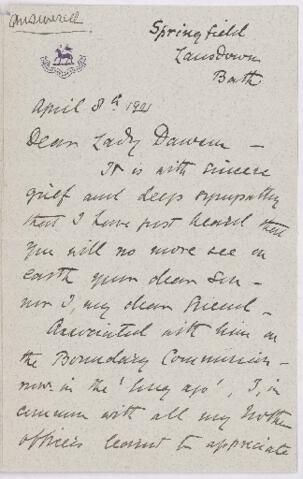 answered
Springfield
Lansdown
Bath
April 8th 1921
Dear Lady Dawson -
It is with sincere
grief and deep sympathy
that I have just heard that
you will no more see on
earth your dear son -
nor I, my dear friend -
Associated with him on
the Boundary Commission -
now in the 'long ago', I, in
common with all my brother
officers learnt to appreciate